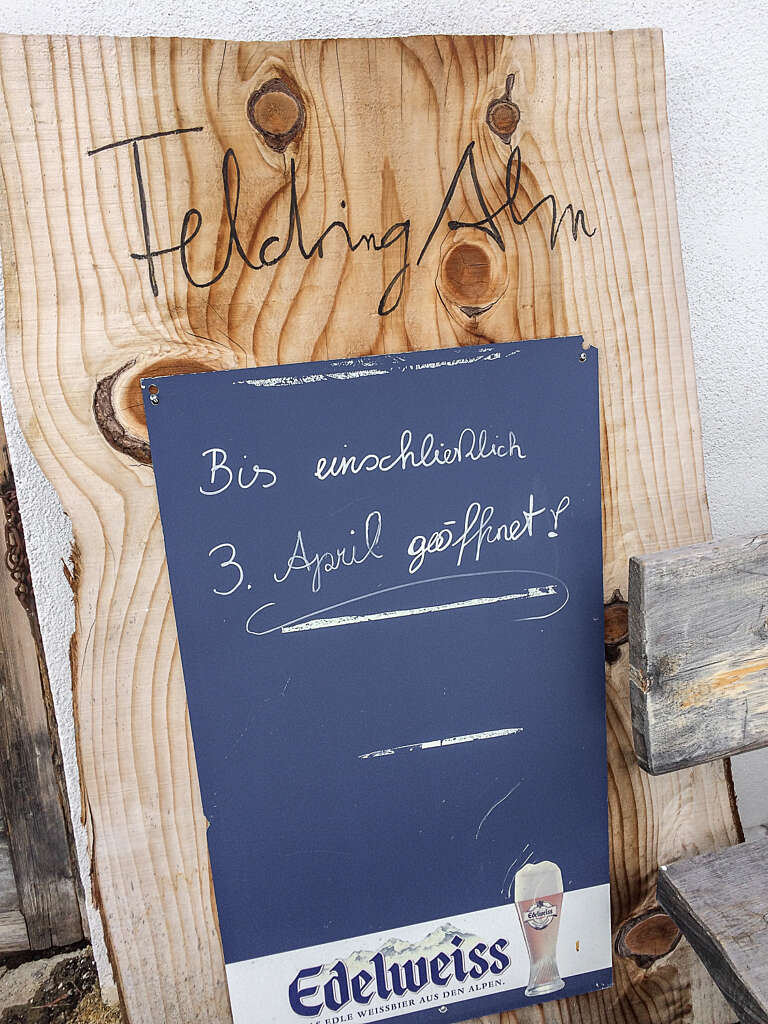 Feldring Alm
Bis einschließlich
3. April geöffnet!
Edelweiss
Edelweiss
EDLE WEISSBIER AUS DEN ALPEN.